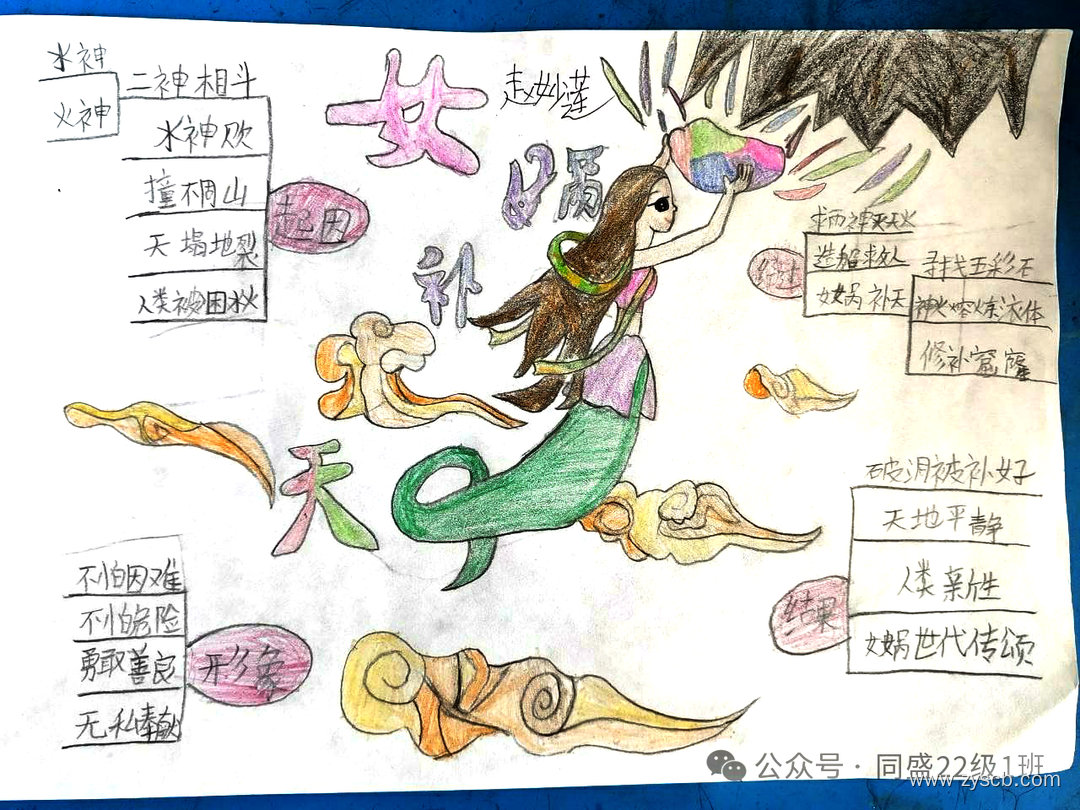 女
娲
补
天
赵妙莲
水神
火神
二神相斗
水神败
撞不周山
天塌地裂
人类被困水火
起因
经过
求雨神灭天火
造船救人
女娲补天
寻找五彩石
神火熔炼液体
修补窟窿
结果
破洞被补好
天地平静
人类新生
女娲世代传颂
形象
不怕困难
不怕危险
勇敢善良
无私奉献
公众号·同盛22级1班
www.zyscb.com